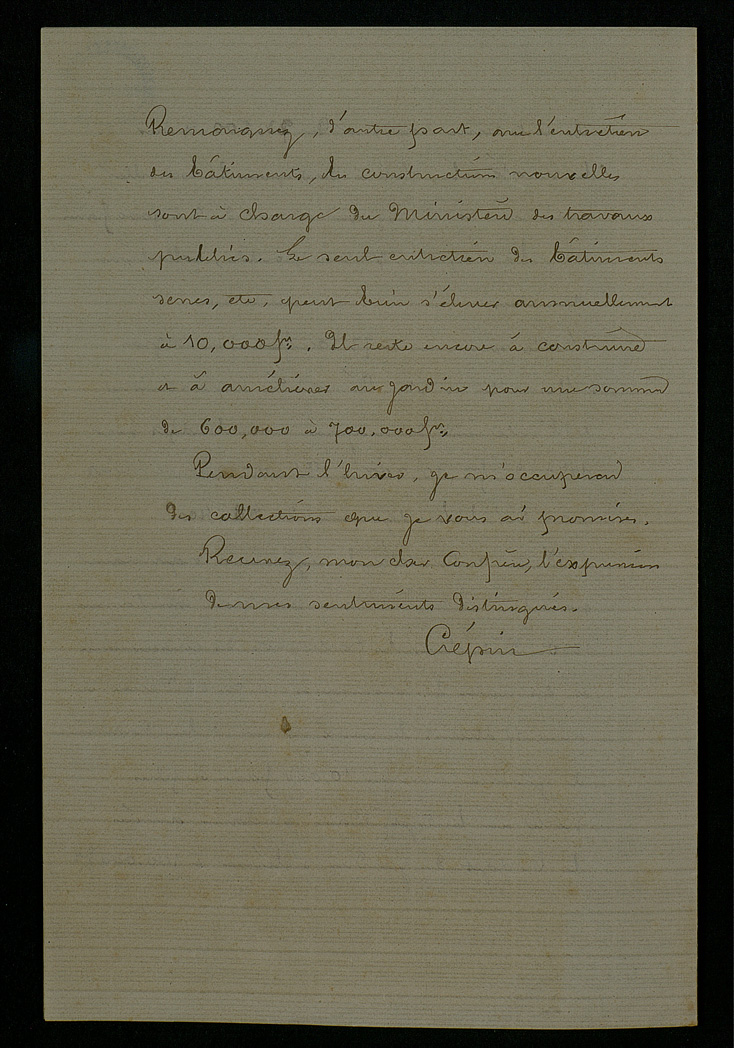 Remarquez, d'autre part, que l'entretien
des bâtiments, les constructions nouvelles
sont à charge du Ministère des travaux
publics. Le seul entretien des bâtiments
serres, etc, peut bien s'élever annuellement
à 10,000 frs. Il reste encore à construire
et à améliorer au jardin pour une somme
de 600,000 à 700,000 frs.
Pendant l'hiver, je m'occuperai
des collections que je vous ai promises.
Recevez, mon cher Confrère, l'expression
de mes sentiments distingués.
Crépin